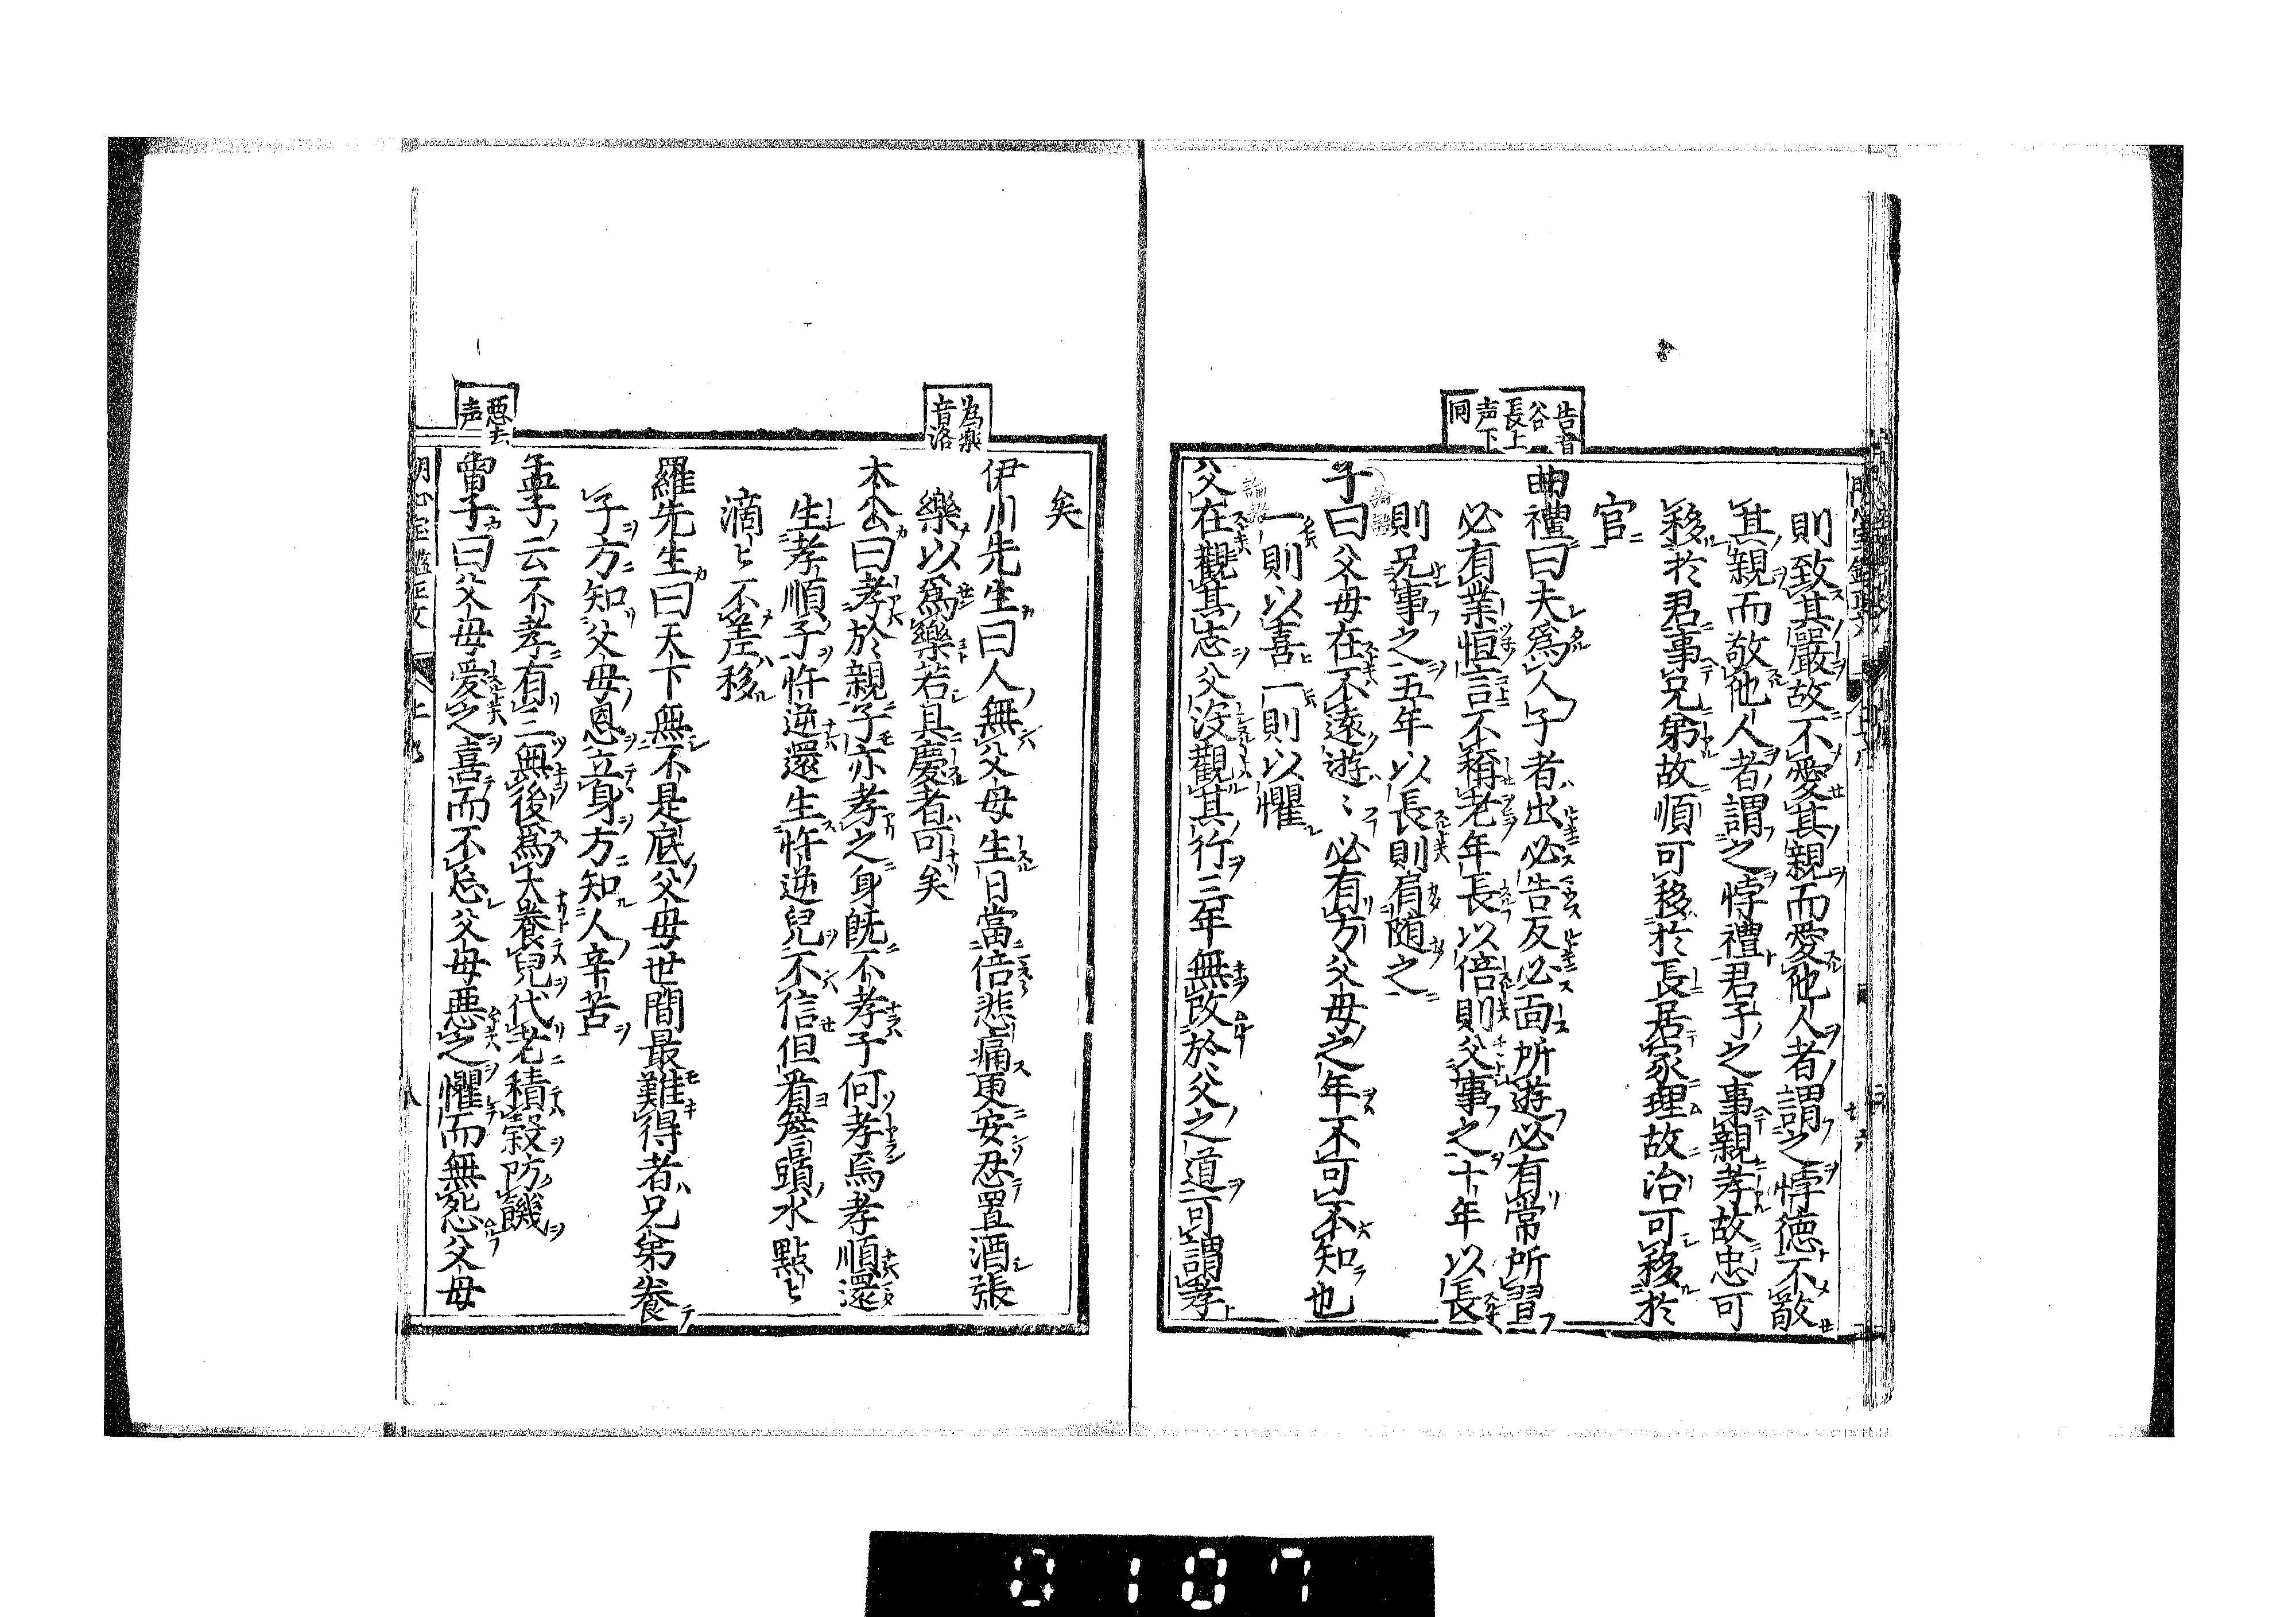 告音
谷
長上
声下
同
則致其嚴故不愛其親而愛他人者謂之悖德不敬
其親而敬他人者謂之悖禮君子之事親孝故忠可
移於君事兄弟故順可移於長居家理故治可移於
官
曲禮曰夫爲人子者出必告反必面所遊必有常所習
必有業恒言不稱老年長以倍則父事之十年以長
則兄事之五年以長則肩随之
子曰父母在不遠遊〻必有方父母之年不可不知也
一則以喜一則以懼
父在觀其志父沒觀其行三年無改於父之道可謂孝
為樂
音洛
惡去
声
矣
伊川先生曰人無父母生日當倍悲痛更安忍置酒張
樂以爲樂若具慶者可矣
太公曰孝於親子亦孝之身既不孝子何孝焉孝順還
生孝順子忤逆還生忤逆兒不信但看簷頭水點〻
滴〻不差移
羅先生曰天下無不是底父母世間最難得者兄弟養
子方知父母恩立身方知人辛苦
孟子云不孝有三無後爲大養兒代老積穀防饑
曾子曰父母愛之喜而不忘父母惡之懼而無怨父母
0107